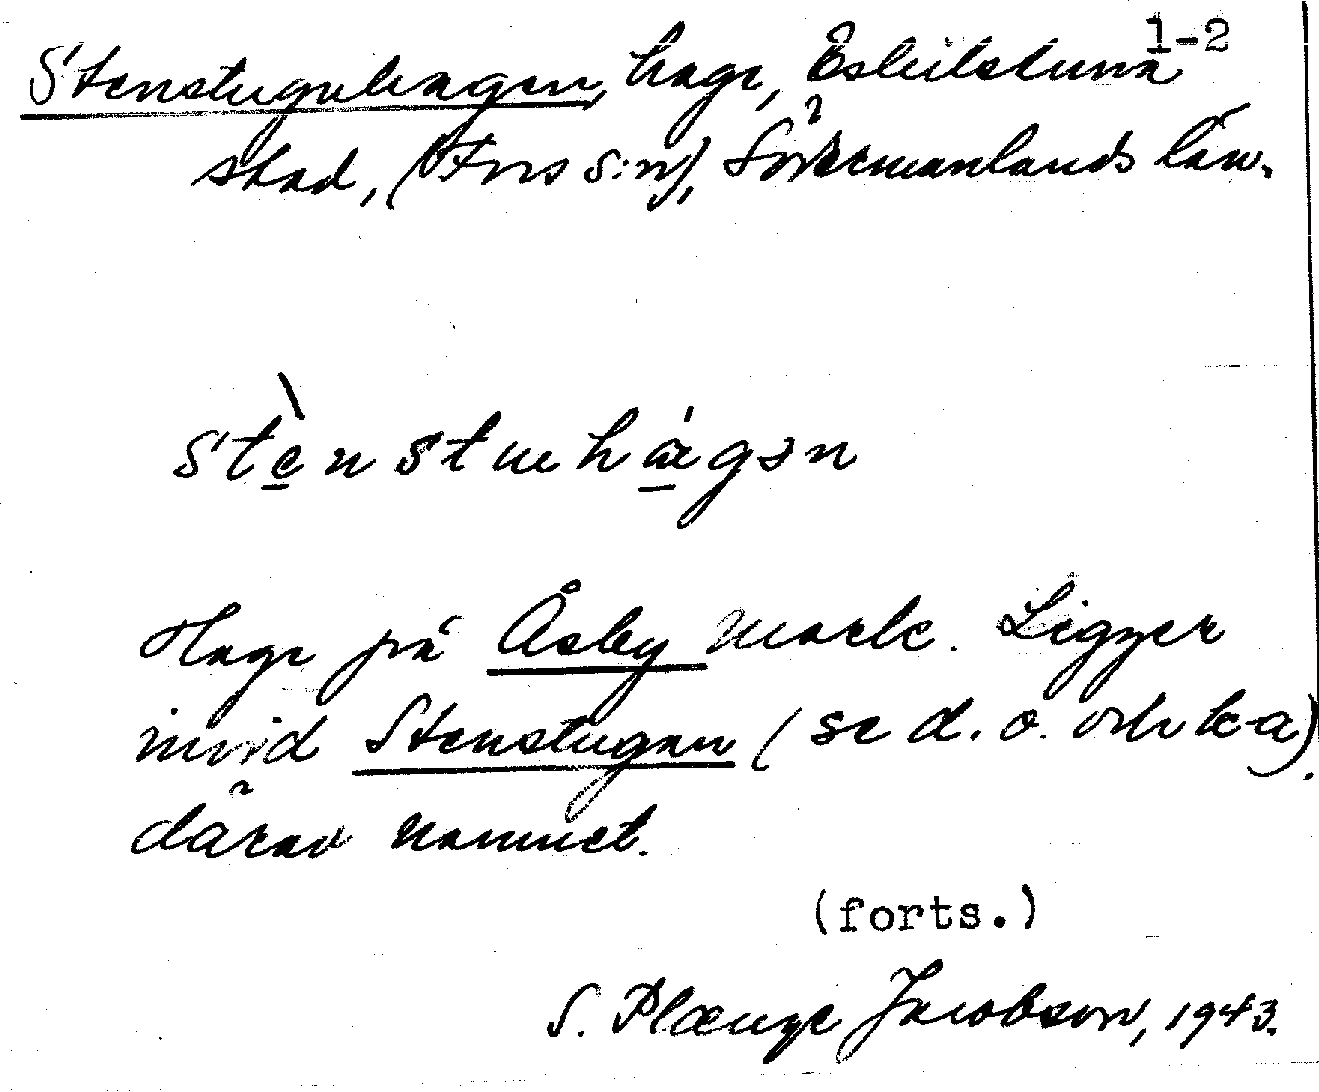 1-2
Stenstugubagen, hage, Eskilstuna
stad, (Fors s:n), Södermanlands län.
stè̱nstuehá̱gən
Hage på Åsby mark. Ligger
invid Stenstugan (se d. o. och k-a).
därav namnet.
(forts.)
S. Plænge Jacobson, 1943.